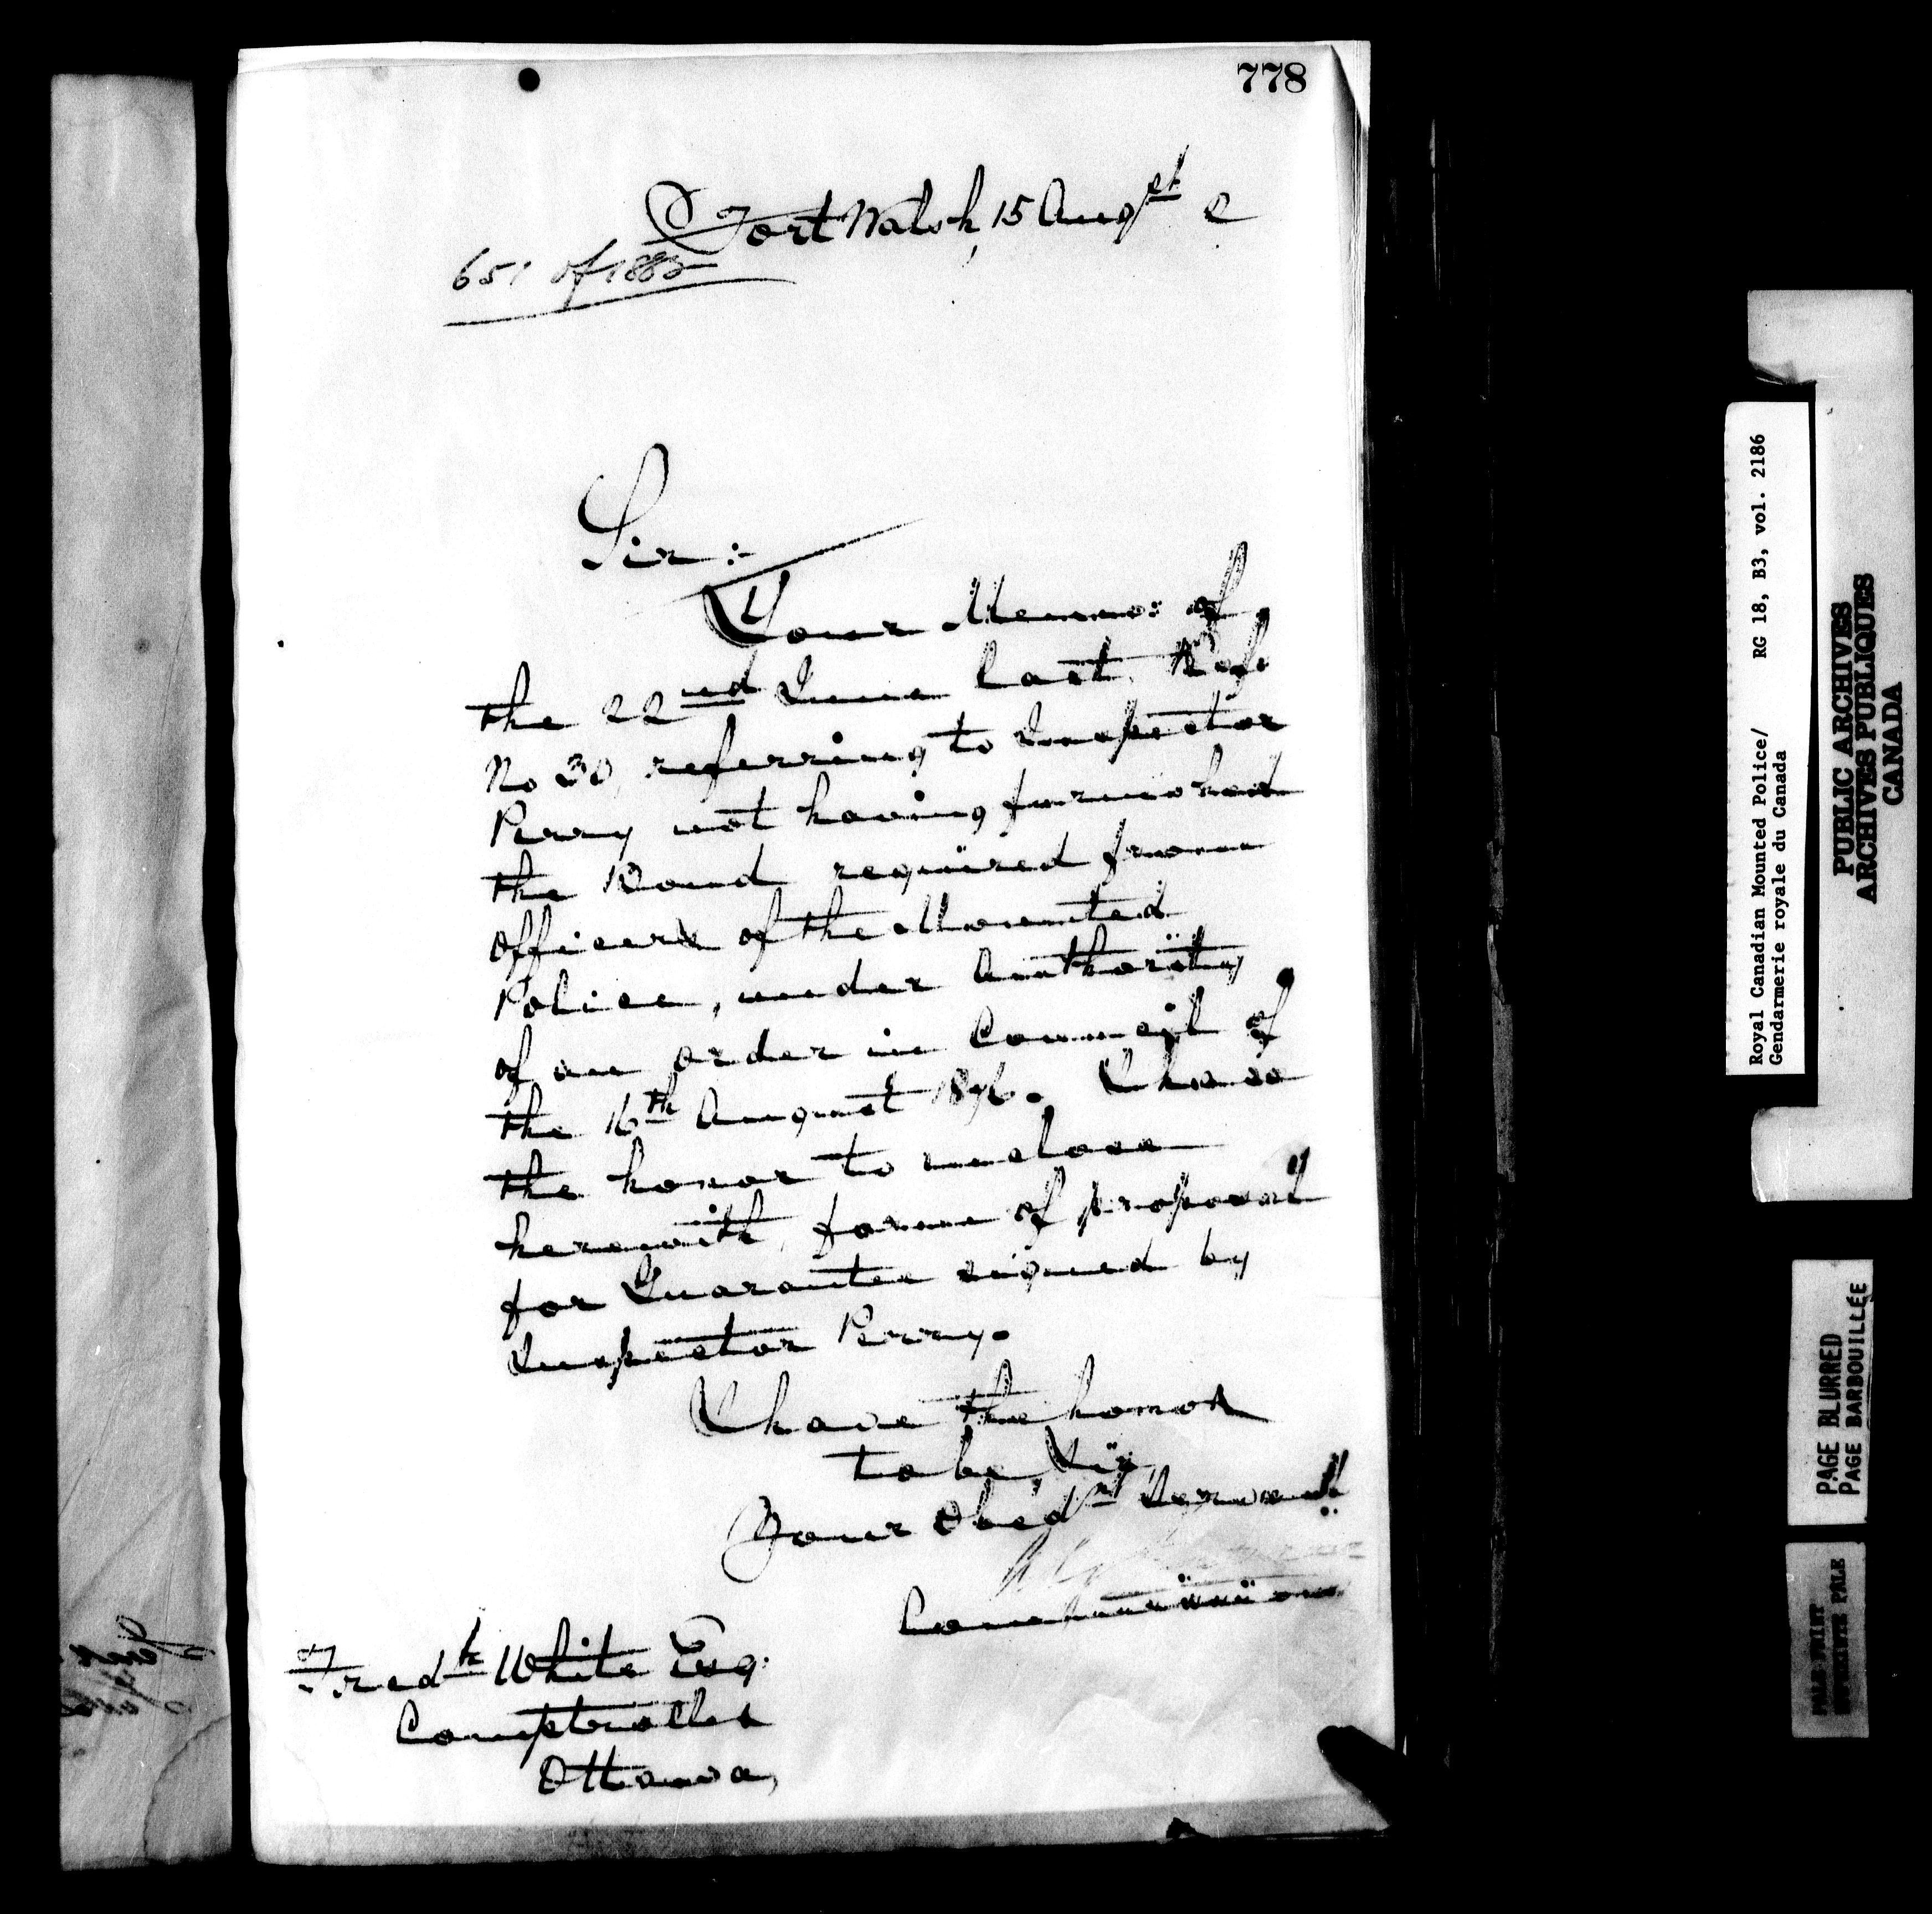 778
Fort Walsh, 15 Augst 2
651 of 1882
Sir:
Your Memo: of
the 22nd June last, Ref:
No 30, referring to Inspector
Perry not having furnished
the Bond required from
Officers of the Mounted
Police, under Authority
of an Order in Council of
the 16th August 1876. I have
the honor to enclose
herewith, form of proposal
for Guarantee signed by
Inspector Perry.
I have the honor
to be, Sir,
Your Obedt Servant
Commissioner
Fredk White Esq:
Comptroller
Ottawa,
Royal Canadian Mounted Police/ RG 18, B3, vol. 2186
Gendarmerie royale du Canada
PUBLIC ARCHIVES
ARCHIVES PUBLIQUES
CANADA
PAGE BLURRED
PAGE BARBOUILLÉE
PALE PRINT